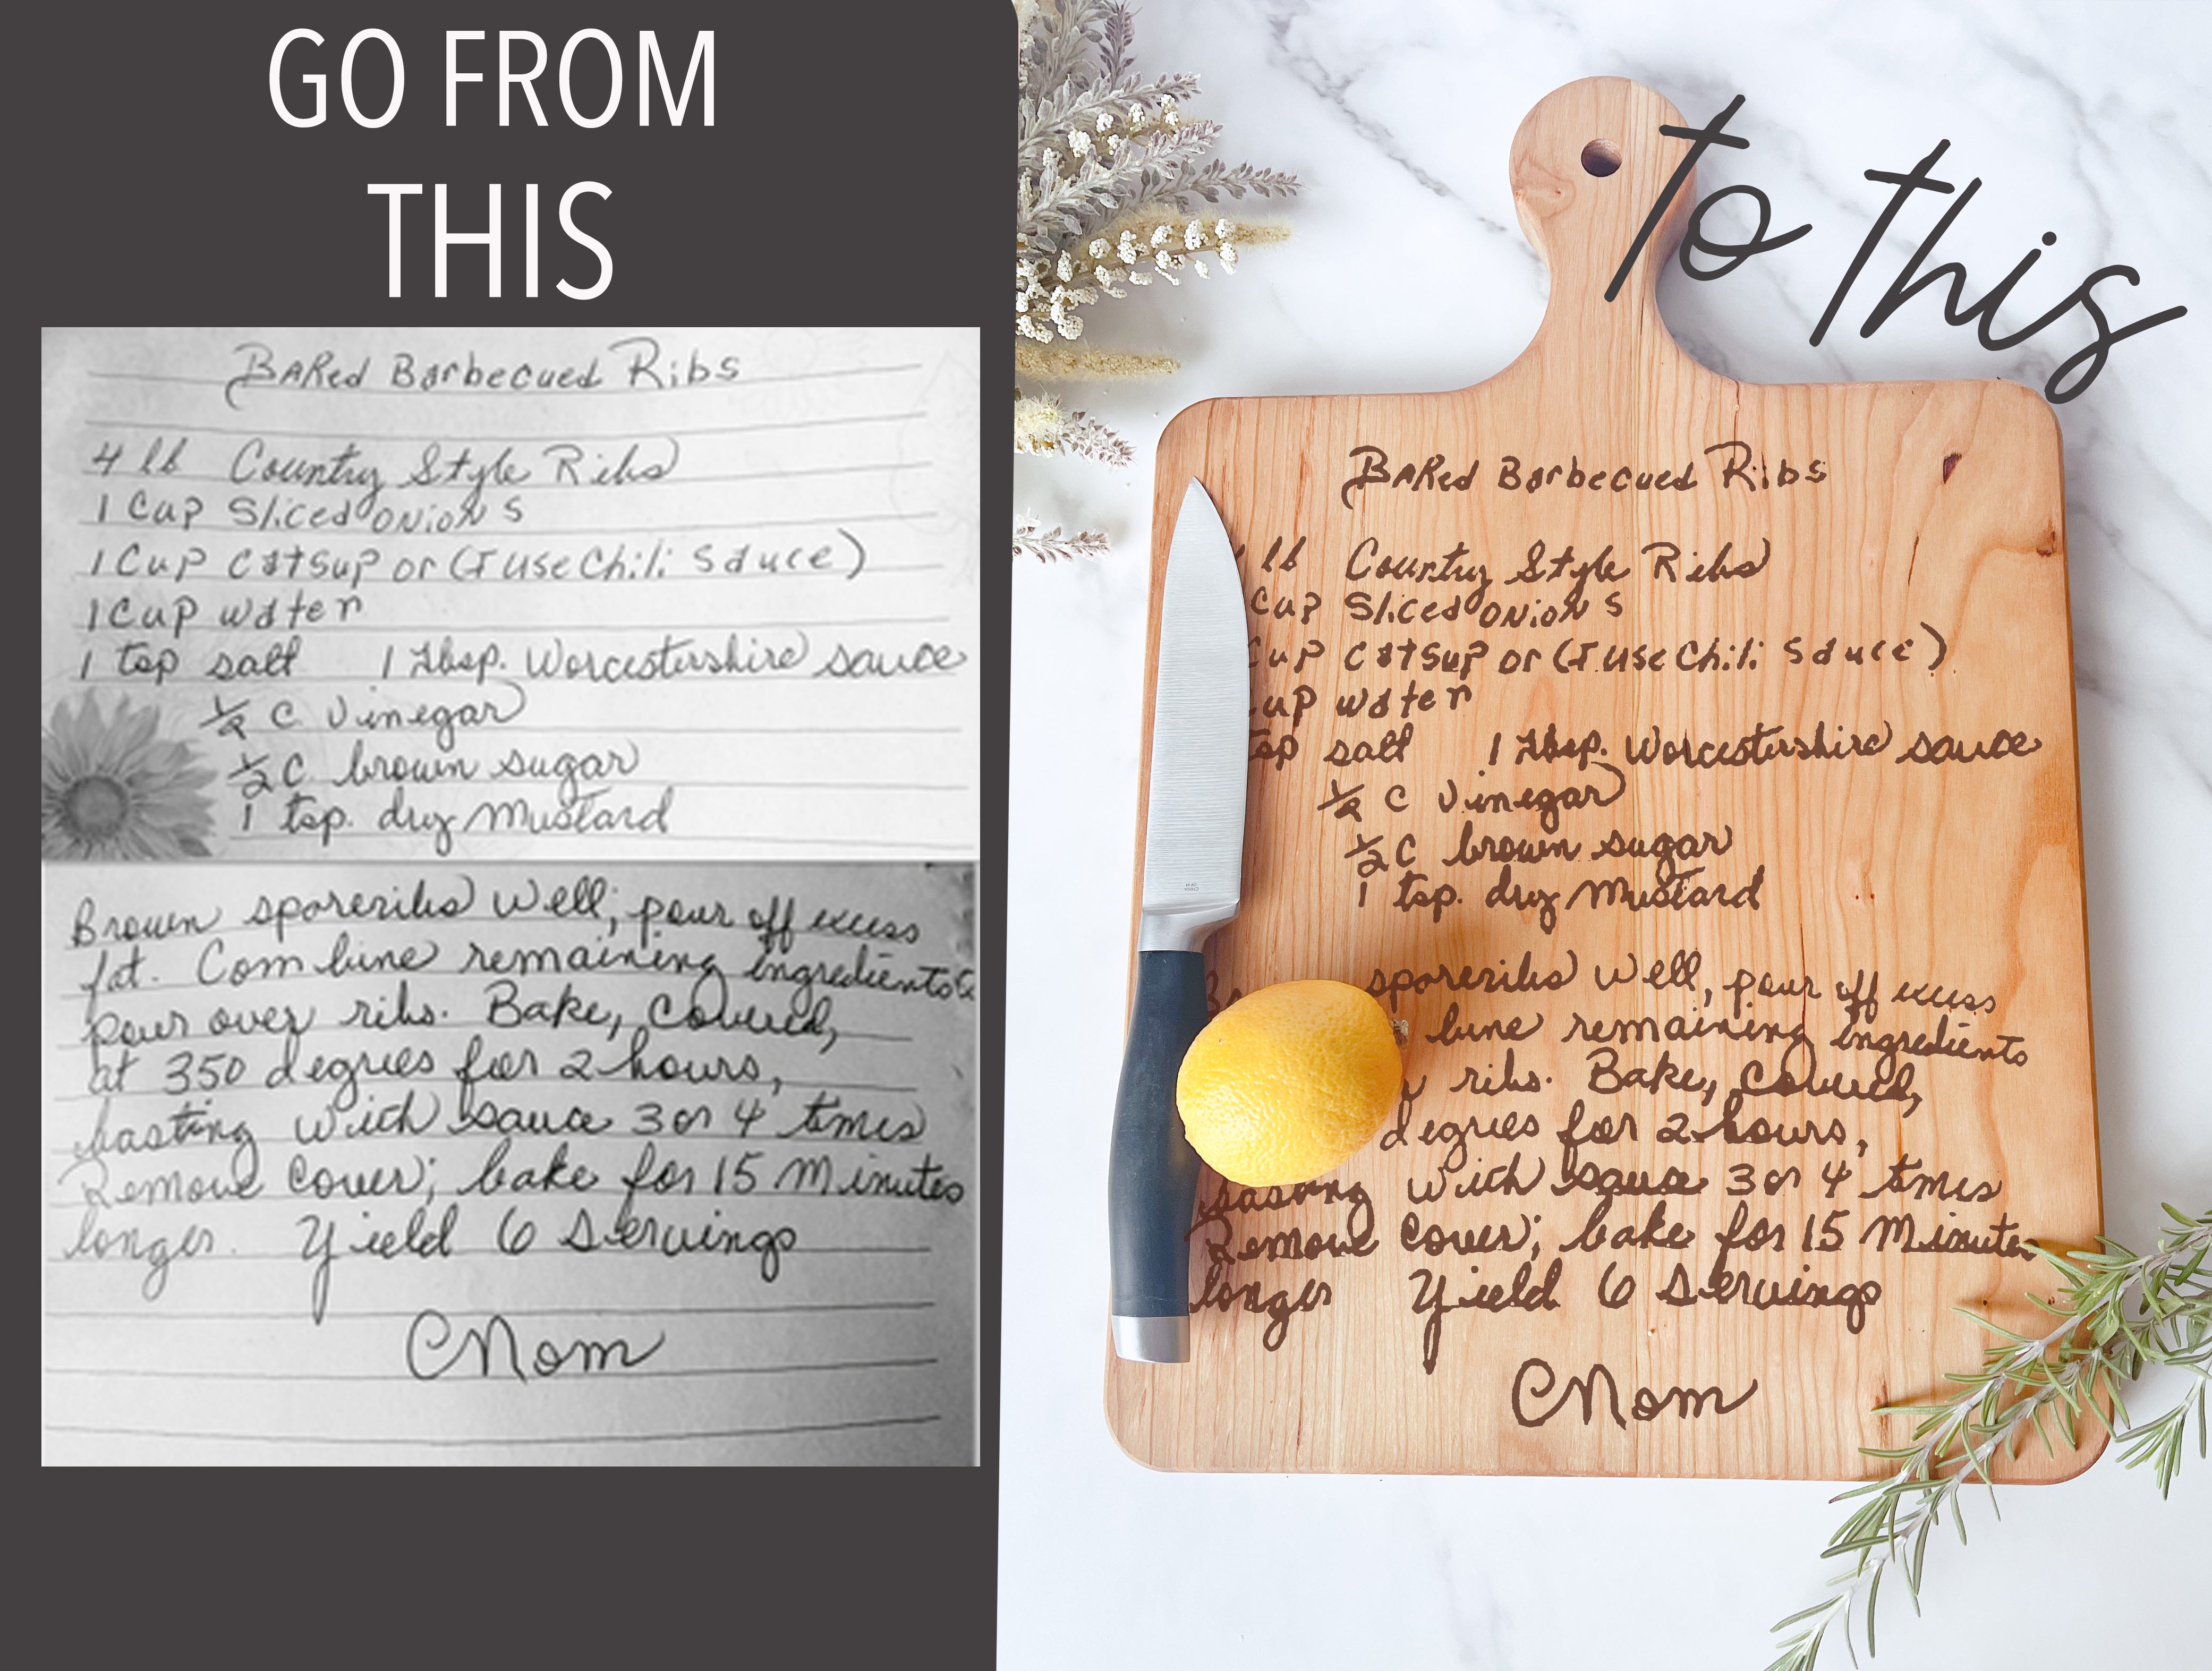 GO FROM
THIS
BAKed Barbecued Ribs
4 lb Country Style Ribs
1 Cup Sliced onions
1 Cup catsup or (I use Chili Sauce)
1 Cup water
1 tsp salt 1 Tbsp. Worcestershire sauce
1/2 C Vinegar
1/2 C brown sugar
1 tsp. dry Mustard
Brown spareribs well; pour off excess
fat. Combine remaining ingredients &
pour over ribs. Bake, Covered,
at 350 degrees for 2 hours,
basting with sauce 3 or 4 times
Remove cover; bake for 15 Minutes
longer. Yield 6 Servings
Mom
to this
BAKed Barbecued Ribs
lb Country Style Ribs
Cup Sliced onions
Cup catsup or (I use Chili Sauce)
up water
tsp salt 1 Tbsp. Worcestershire sauce
1/2 C Vinegar
1/2 C brown sugar
1 tsp. dry Mustard
spareribs well, pour off excess
bine remaining ingredients
ribs. Bake, Covered,
degrees for 2 hours,
basting with sauce 3 or 4 times
Remove cover; bake for 15 Minutes
longer Yield 6 Servings
Mom